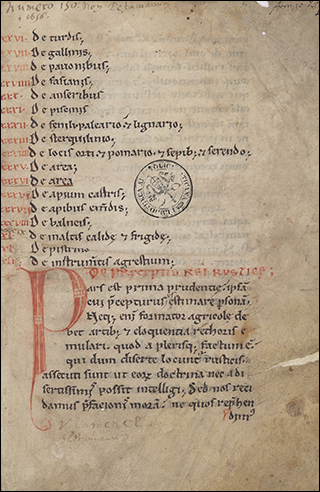 De turdis;
De gallinis;
De pavonibus;
De fasianis;
De anseribus
De piscinis
De fenili paleario & lignario;
De sterquilinio;
De locis orti & pomario, & sepib; & serendo;
De area;
De area
De apium castris;
De apibus
De balneis;
De maltis calidę & frigidę;
De pistrino
De instrumtis agrestium;
DE PRECEPTIO REI RUSTICE;
Pars est prima prudentie ipsā
cui p̄cepturus estimare p̄sonā
Neq; enī formator agricole de
bet artib; & eloquentia rethoris e
mulari, quod a plerisq, factum ē
qui dum diserte locunt rusticis.
assecuti sunt ut eorum doctrina nec a di
sertissimis possit intelligi, Sed nos reci
damus p̄facionis morā: ne quos rep̄hen